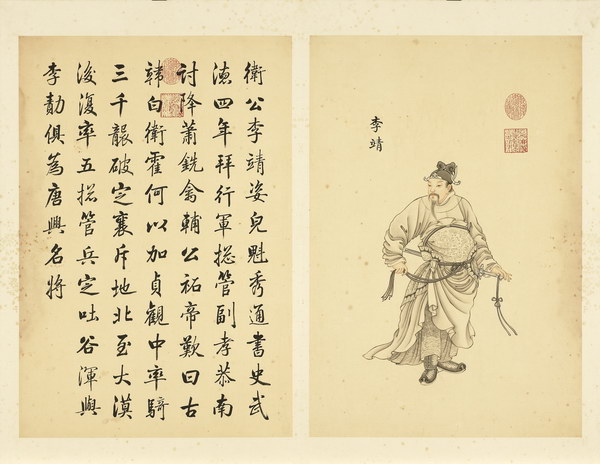 李靖
衛公李靖姿皃魁秀通書史武
德四年拜行軍摠管副孝恭南
討降蕭銑禽輔公祏帝歎曰古
韓白衛霍何以加貞觀中率騎
三千襲破定襄斥地北至大漠
後復率五摠管兵定吐谷渾與
李勣俱為唐興名將